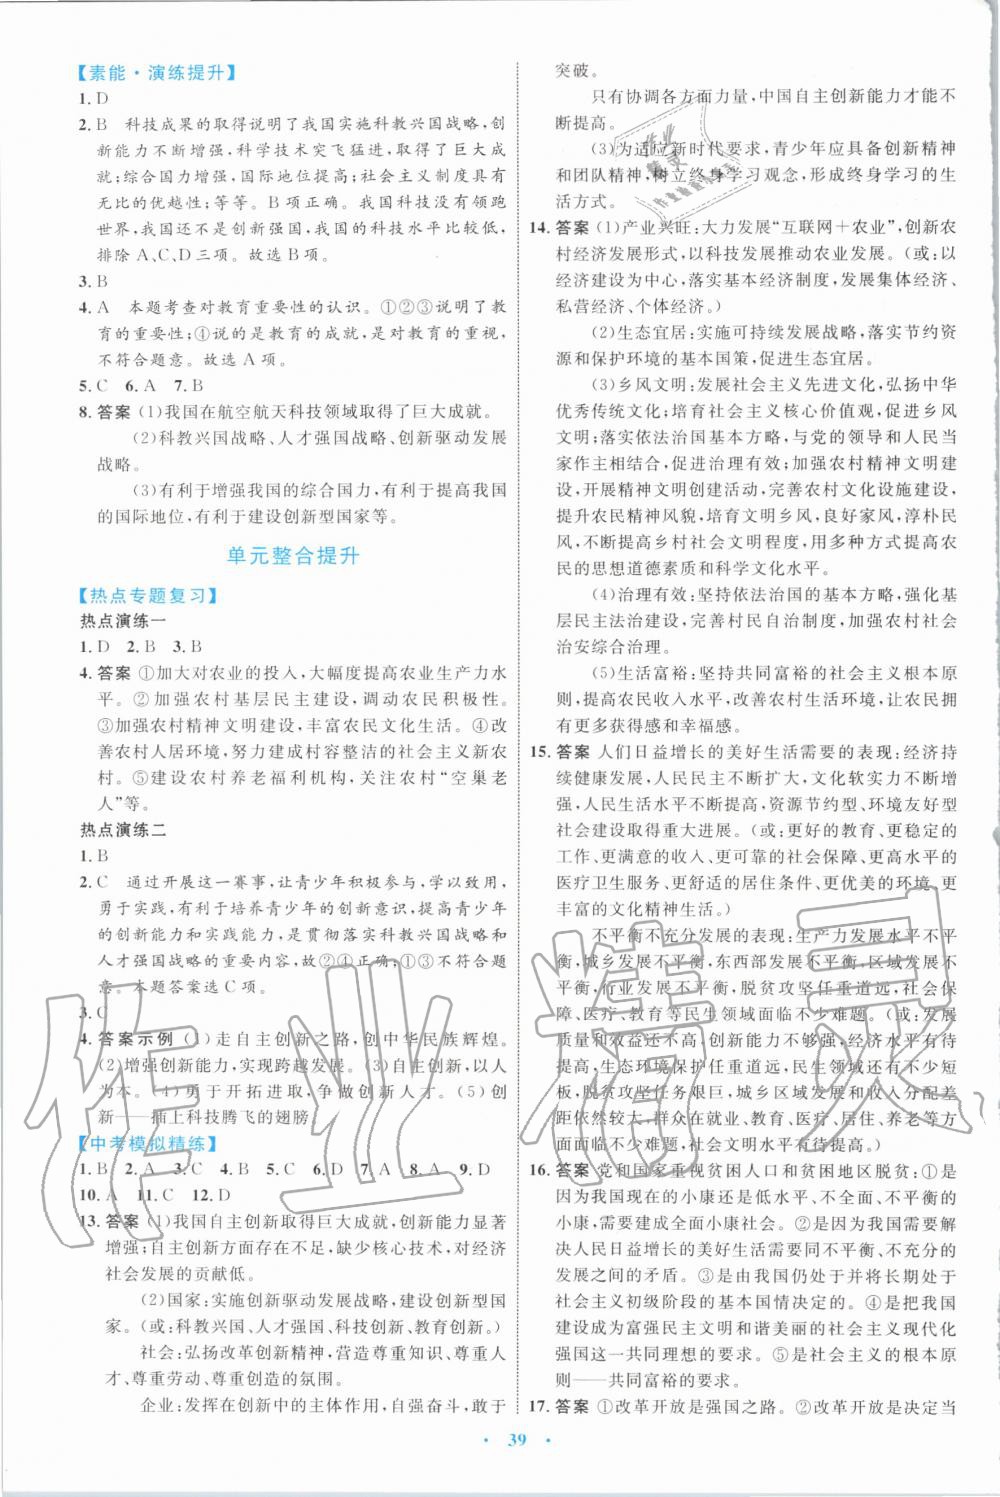 【素能·演练提升】
1. D
2. B 科技成果的取得说明了我国实施科教兴国战略,创
新能力不断增强,科学技术突飞猛进,取得了巨大成
就;综合国力增强,国际地位提高;社会主义制度具有
无比的优越性;等等。B项正确。我国科技没有领跑
世界,我国还不是创新强国,我国的科技水平比较低,
排除A、C、D三项。故选B项。
3. B
4. A 本题考查对教育重要性的认识。①②③说明了教
育的重要性;④说的是教育的成就,是对教育的重视,
不符合题意。故选A项。
5. C 6. A 7. B
8. 答案 (1)我国在航空航天科技领域取得了巨大成就。
(2)科教兴国战略、人才强国战略、创新驱动发展
战略。
(3)有利于增强我国的综合国力,有利于提高我国
的国际地位,有利于建设创新型国家等。
单元整合提升
【热点专题复习】
热点演练一
1. D 2. B 3. B
4. 答案 ①加大对农业的投入,大幅度提高农业生产力水
平。②加强农村基层民主建设,调动农民积极性。
③加强农村精神文明建设,丰富农民文化生活。④改
善农村人居环境,努力建成村容整洁的社会主义新农
村。⑤建设农村养老福利机构,关注农村“空巢老
人”等。
热点演练二
1. B
2. C 通过开展这一赛事,让青少年积极参与,学以致用,
勇于实践,有利于培养青少年的创新意识,提高青少年
的创新能力和实践能力,是贯彻落实科教兴国战略和
人才强国战略的重要内容,故②④正确;①③不符合题
意。本题答案选C项。
3. C
4. 答案示例 (1)走自主创新之路,创中华民族辉煌。
(2)增强创新能力,实现跨越发展。(3)自主创新,以人
为本。(4)勇于开拓进取,争做创新人才。(5)创
新——插上科技腾飞的翅膀。
【中考模拟精练】
1. B 2. A 3. C 4. B 5. C 6. D 7. A 8. A 9. D
10. A 11. C 12. D
13. 答案 (1)我国自主创新取得巨大成就,创新能力显著
增强;自主创新方面存在不足,缺少核心技术,对经济
社会发展的贡献低。
(2)国家:实施创新驱动发展战略,建设创新型国
家。(或:科教兴国、人才强国、科技创新、教育创新。)
社会:弘扬改革创新精神,营造尊重知识、尊重人
才、尊重劳动、尊重创造的氛围。
企业:发挥在创新中的主体作用,自强奋斗,敢于
突破。
只有协调各方面力量,中国自主创新能力才能不
断提高。
(3)为适应新时代要求,青少年应具备创新精神
和团队精神,树立终身学习观念,形成终身学习的生
活方式。
14. 答案 (1)产业兴旺:大力发展“互联网＋农业”,创新农
村经济发展形式,以科技发展推动农业发展。(或:以
经济建设为中心,落实基本经济制度,发展集体经济、
私营经济、个体经济。)
(2)生态宜居:实施可持续发展战略,落实节约资
源和保护环境的基本国策,促进生态宜居。
(3)乡风文明:发展社会主义先进文化,弘扬中华
优秀传统文化;培育社会主义核心价值观,促进乡风
文明;落实依法治国基本方略,与党的领导和人民当
家作主相结合,促进治理有效;加强农村精神文明建
设,开展精神文明创建活动,完善农村文化设施建设,
提升农民精神风貌,培育文明乡风、良好家风、淳朴民
风,不断提高乡村社会文明程度,用多种方式提高农
民的思想道德素质和科学文化水平。
(4)治理有效:坚持依法治国的基本方略,强化基
层民主法治建设,完善村民自治制度,加强农村社会
治安综合治理。
(5)生活富裕:坚持共同富裕的社会主义根本原
则,提高农民收入水平,改善农村生活环境,让农民拥
有更多获得感和幸福感。
15. 答案 人们日益增长的美好生活需要的表现:经济持
续健康发展,人民民主不断扩大,文化软实力不断增
强,人民生活水平不断提高,资源节约型、环境友好型
社会建设取得重大进展。(或:更好的教育、更稳定的
工作、更满意的收入、更可靠的社会保障、更高水平的
医疗卫生服务、更舒适的居住条件、更优美的环境、更
丰富的文化精神生活。)
不平衡不充分发展的表现:生产力发展水平不平
衡,城乡发展不平衡,东西部发展不平衡,区域发展不平
衡,行业发展不平衡,脱贫攻坚任重道远,在就业、社会保
障、医疗、教育等民生领域不少难题。(或:发展
质量和效益还不高,创新能力不够强,实体经济水平有
待提高,生态环境保护任重道远,民生领域还有不少短
板,脱贫攻坚任务艰巨,城乡区域发展和收入分配差距
依然较大,群众在就业、教育、医疗、居住、养老等方
面不少难题,社会文明水平有待提高。)
16. 答案 党和国家重视贫困人口和贫困地区脱贫:①是
因为我国现在的小康还是低水平、不全面、不平衡的
小康,需要建成全面小康社会。②是因为我国需要解
决人民日益增长的美好生活需要同不平衡、不充分的
发展之间的矛盾。③是由我国仍处于并将长期处于
社会主义初级阶段的基本国情决定的。④是把我国
建设成为富强民主文明和谐美丽的社会主义现代化
强国这一共同理想的要求。⑤是社会主义的根本原
则——共同富裕的要求。
17. 答案 ①改革开放是强国之路。②改革开放是决定当
· 39 ·
作业精灵